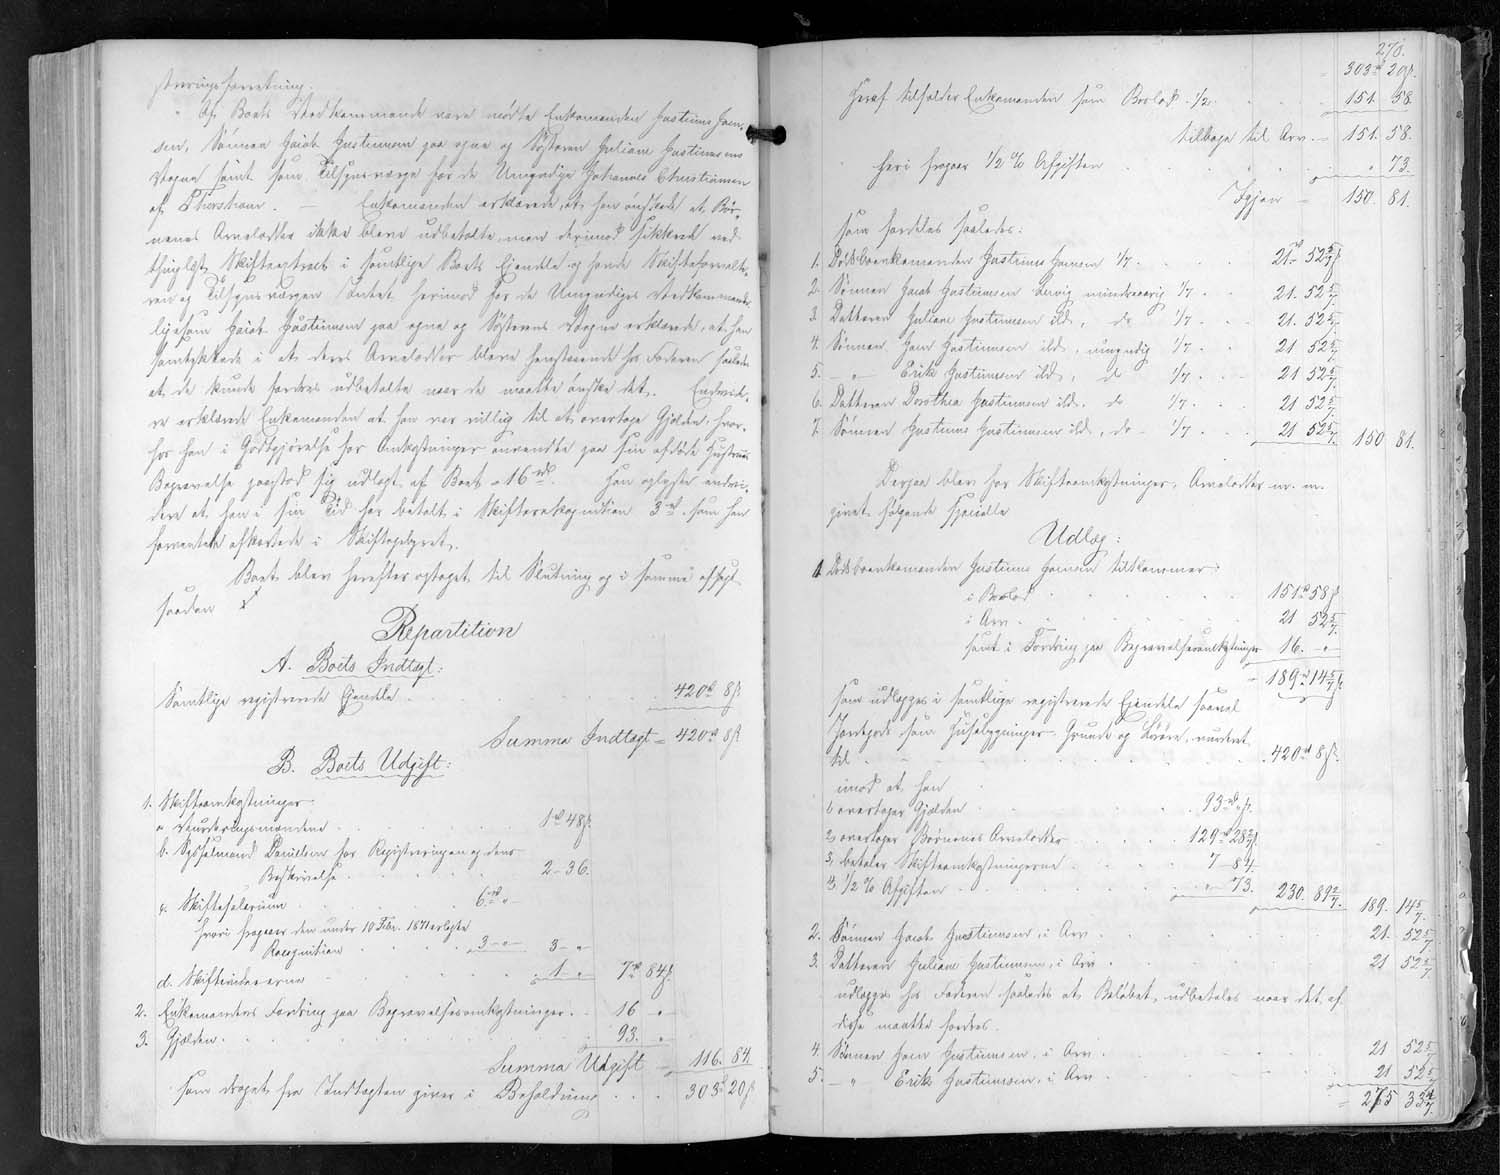 streringsforretning.
Af Boets Vedkommende vare mødte Enkemanden Justinus Han-
sen, Sønnen Jacob Justinussen paa egne og Søsteren Juliane Justinussens
Vegne samt som Tilsynsværge for de Umyndige Johannes Christiansen
af Thorshavn. — Enkemanden erklærede, at han ønskede at Bør-
nenes Arvelodder ikke bleve udbetalte, men derimod sikkrede ved
thinglyst Skifteextract i samtlige Boets Eiendele og havde Skifteforvalte-
ren og Tilsynsværgen Intet herimod for de Umyndiges Vedkommende
ligesom Jacob Justinussen paa egne og Søsterens Vegne erklærede, at han
samtykkede i at deres Arvelodder bleve henstaaende hos Faderen saaledes
at de kunde fordres udbetalte naar de maatte ønske det. Endvide-
re erklærede Enkemanden at han var villig til at overtage Gjælden, hvor-
hos han i Godtgjørelse for Omkostninger anvendte paa sin afdøde Hustrues
Begravelse paastod sig udlagt af Boet 16 rd. Han oplyste endvi-
dere at han i sin Tid har betalt i Skifterekognition 3 rd. som han
forventede afkortede i Skiftegebyret.
Boet blev herefter optaget til Slutning og i samme afsagt
saadan
Repartition
A. Boets Indtægt:
Samtlige registrerede Eiendele . . . 420 rd 8 ß
Summa Indtægt = 420 rd 8 ß
B. Boets Udgift:
1. Skifteomkostninger
a. Vurderingsmændene . . . 1 rd 48 ß.
b. Sysselmand Danielsen for Registreringen og dens
Beskrivelse . . . 2 - 36.
c. Skiftesalarium . . . 6 rd "
hvori fragaaer den under 10 Febr. 1871 erlagte
Recognition . . . 3 - " - 3 - "
d. Skifteviderne . . . 1 - " 7 rd 84 ß
2. Enkemandens Fordring paa Begravelsesomkostninger . . 16 - "
3. Gjælden . . . 93. "
Summa Udgift - 116. 84.
som draget fra Indtægten giver i Beholdning . . . 303 rd 20 ß
270.
303 rd 20 ß.
Heraf tilfalder Enkemanden som Boslod 1/2 . . . 151. 58.
tilbage til Arv. - 151. 58.
heri fragaaer 1/2 % Afgiften . . . " 73.
Igjen = 150. 81.
som fordeles saaledes:
1. Dødsboenkemanden Justinus Hansen 1/7 . . . 21 rd 52 5/7 ß
2. Sønnen Jacob Justinussen mindreaarig 1/7 . . . 21. 52 5/7
3. Datteren Juliane Justinussen ibd, do 1/7 . . . 21. 52 5/7
4. Sønnen Hans Justinussen ibd, umyndig 1/7 . . 21 52 5/7
5. — " — Erik Justinussen ibd, do 1/7 . . . 21 52 5/7
6. Datteren Dorothea Justinussen ibd, do 1/7 . . . 21 52 5/7
7. Sønnen Justinus Justinussen ibd, do - 1/7 . . 21 52 5/7. 150 81.
Derpaa blev for Skifteomkostninger, Arvelodder m. m.
givet følgende specielle
Udlæg:
1. Dødsboenkemanden Justinus Hansen tilkommer:
i Boslod . . . 151 rd 58 ß
i Arv . . . 21 52 5/7
samt i Fordring paa Begravelsesomkostninger 16. - "
189 rd 14 5/7 ß
som udlægges i samtlige registrerede Eiendele saavel
Jordegods som Husebygninger, Grunde og Løsøre, vurderet
til . . . 420 rd 8 ß.
imod at han
1, overtager Gjælden . . . 93 rd " ß.
2, overtager Børnenes Arvelodder . . . 129 rd 28 2/7 ß
3, betaler Skifteomkostningerne . . . 7 - 84.
4, 1/2 % Afgiften . . . " - 73. 230. 89 2/7. 189. 14 5/7
2. Sønnen Jacob Justinussen, i Arv . . . 21. 52 5/7
3. Datteren Juliane Justinussen, i Arv . . . 21 52 5/7
udlægges hos Faderen saaledes at Beløbet udbetales naar det af
disse maatte fordres.
4. Sønnen Hans Justinussen, i Arv . . . 21 52 5/7
5. — " Erik Justinussen, i Arv . . . 21 52 5/7
= 275 33 4/7.